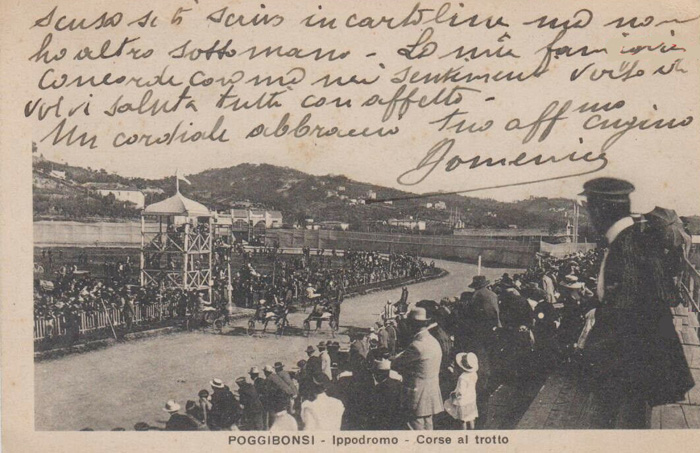 scuso se ti scrivo in cartolina ma non
ho altro sottomano - La mia famiglia
concorde con me nei sentimenti verso di
voi vi saluta tutti con affetto -
Un cordiale abbraccio tuo aff.mo cugino
Domenico
POGGIBONSI - Ippodromo - Corse al trotto